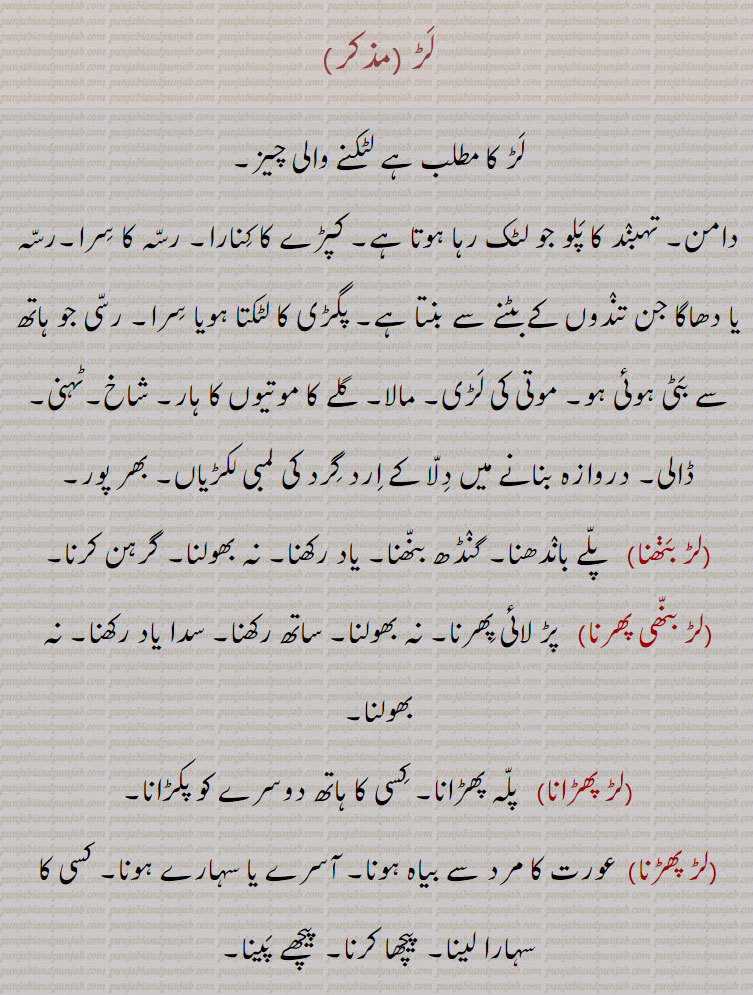 لَڑ (مذکر)
لَڑ کا مطلب ہے لٹکنے والی چیز۔
دامن۔ تہبنْد کا پَلو جو لٹک رہا ہوتا ہے۔ کپڑے کا کِنارا۔ رسّہ کا سِرا۔ رسّہ
یا دھاگا جن تنْدوں کے بٹنے سے بنتا ہے۔ پگڑی کا لٹکتا ہویا سِرا۔ رسّی جو ہاتھ
سے بَٹی ہوئی ہو۔ موتی کی لَڑی۔ مالا۔ گلے کا موتیوں کا ہار۔ شاخ۔ ٹہنی۔
ڈالی۔ دروازہ بنانے میں دِلّا کے اِرد گِرد کی لمبی لکڑیاں۔ بھر پور۔
(لڑ بَنّھنا) پلّے بانْدھنا۔ گنْڈھ بنّھنا۔ یاد رکھنا۔ نہ بھولنا۔ گرہن کرنا۔
(لڑ بنّھی پھرنا) پڑ لائی پِھرنا۔ نہ بھولنا۔ ساتھ رکھنا۔ سدا یاد رکھنا۔ نہ
بھولنا۔
(لڑ پھڑانا) پلّہ پھڑانا۔ کِسی کا ہاتھ دوسرے کو پکڑانا۔
(لڑ پھڑنا) عورت کا مرد سے بیاہ ہونا۔ آسرے یا سہارے ہونا۔ کسی کا
سہارا لینا۔ پیچھا کرنا۔ پیچھے پَینا۔